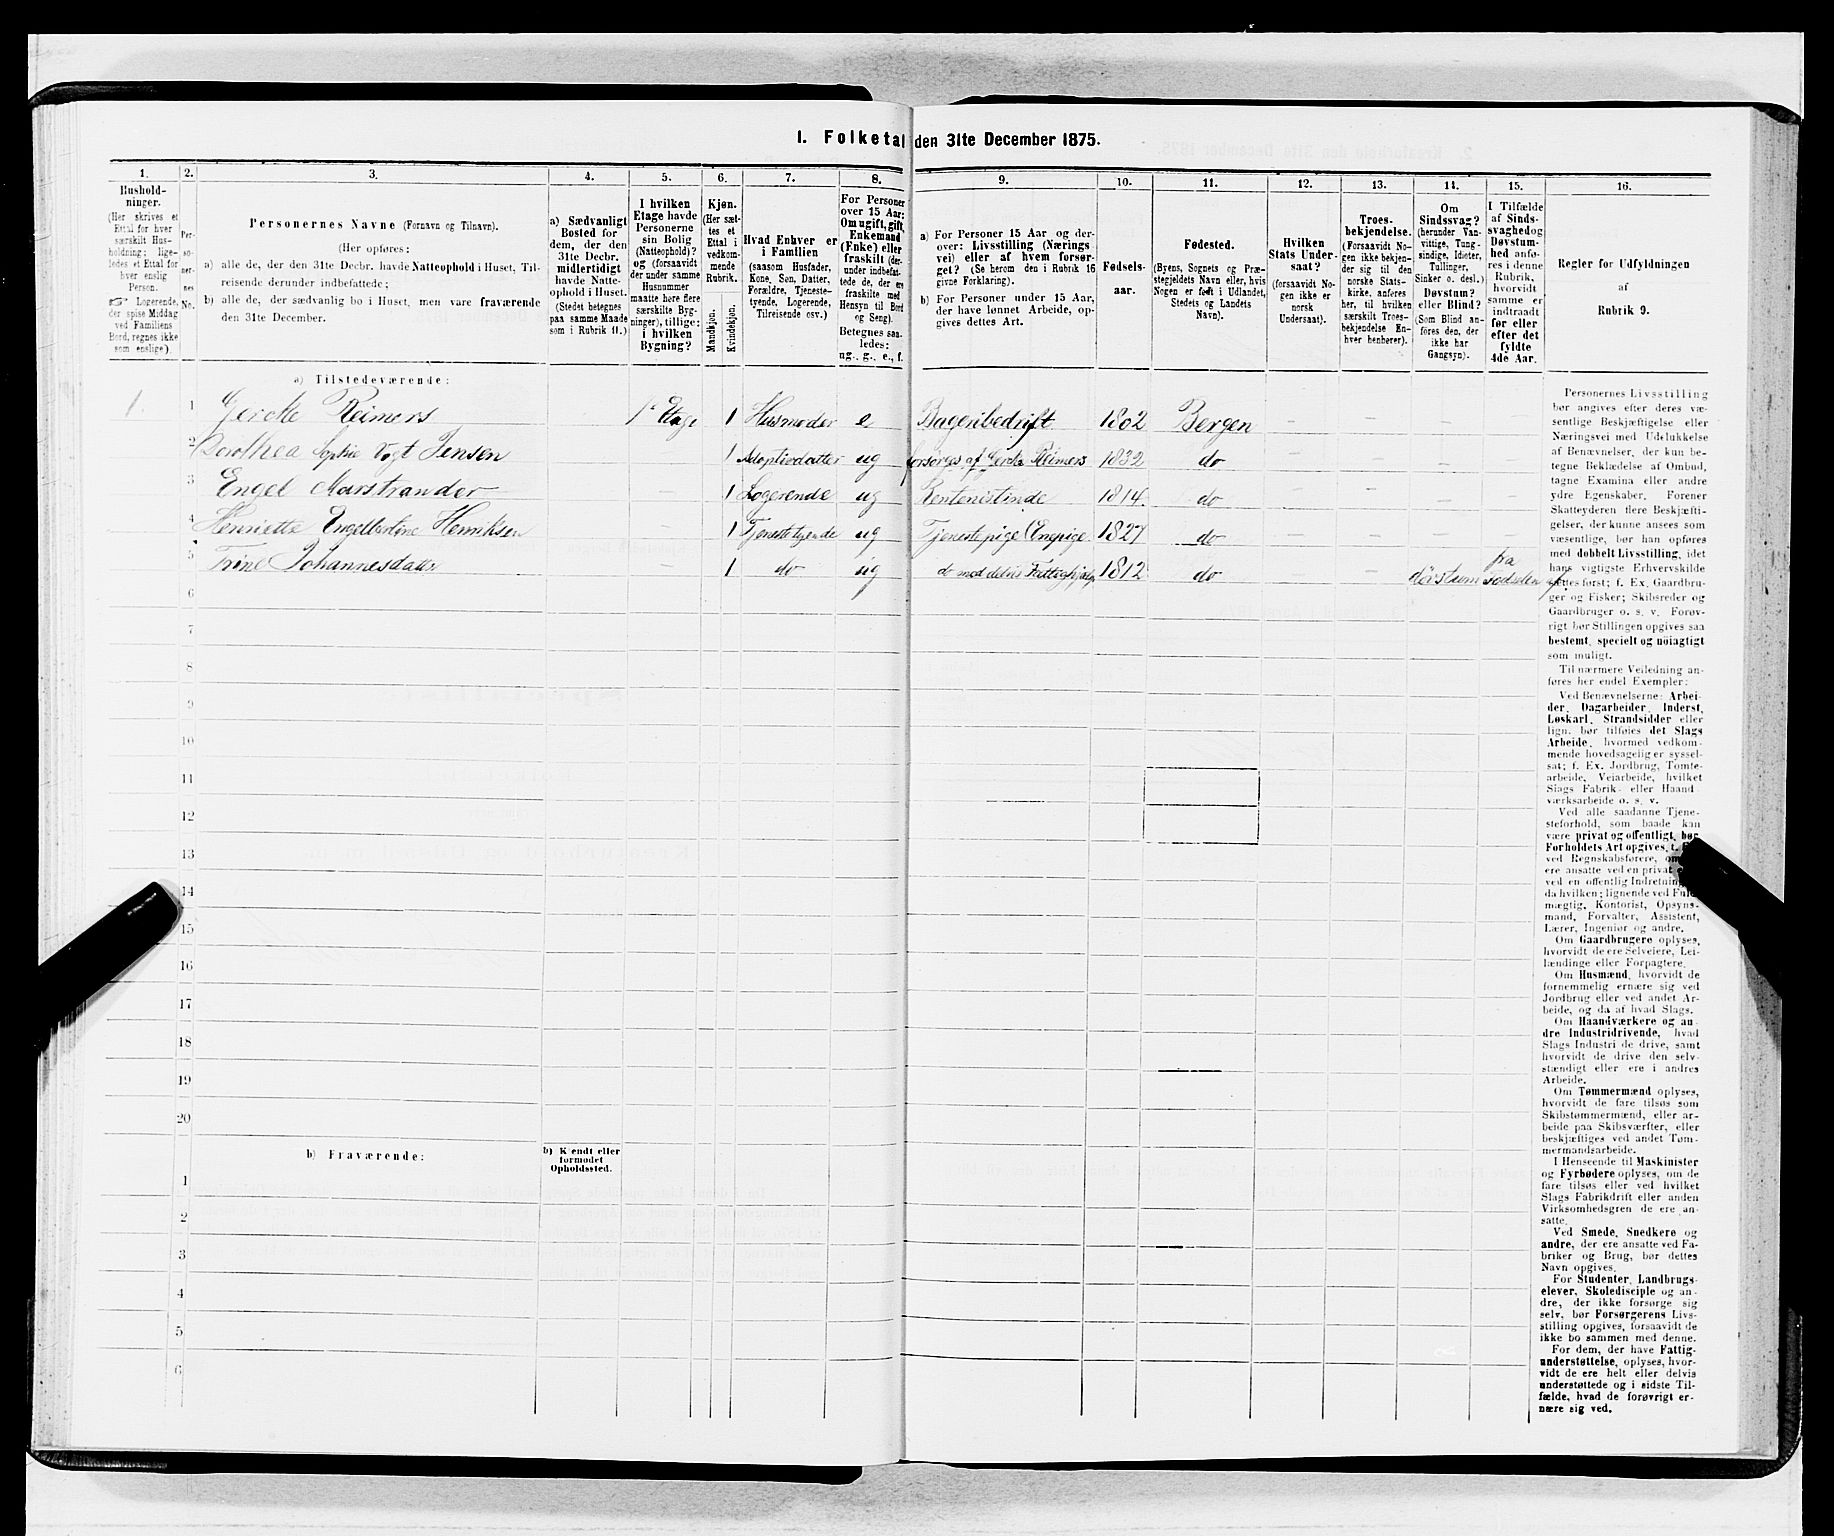 1. Folketal den 31te December 1875.
1.
2.
3.
4.
5.
6.
7.
8.
9.
10.
11.
12.
13.
14.
15.
16.
Hushold-
ninger.
(Her skrives et
Ettal for hver
særskilt Hus-
holdning; lige-
ledes et Ettal for
hver enslig
Person.
☞ Logerende,
der spise Middag
ved Familiens
Bord, regnes ikke
som enslige).
Per-
so-
ner-
nes
No.
Personernes Navne (Fornavn og Tilnavn).
(Her opføres:
a) alle de, der den 31te Decbr. havde Natteophold i Huset, Til-
reisende derunder indbefattede;
b) alle de, der sædvanlig bo i Huset, men vare fraværende
den 31te December.
a) Sædvanligt
Bosted for
dem, der den
31te Decbr.
midlertidigt
havde Natte-
ophold i Huset.
(Stedet betegnes
paa samme Maade
som i Rubrik 11.)
I hvilken
Etage havde
Personerne
sin Bolig
(Natteophold)?
og (forsaavidt
der under samme
Husnummer
maatte høre flere
særskilte Byg-
ninger), tillige:
i hvilken
Bygning?
Kjøn.
(Her sæt-
tes et
Ettal i
vedkom-
mende
Rubrik.
Mandkjøn.
Kvindekjøn.
Hvad Enhver er
i Familien
(saasom Husfader,
Kone, Søn, Datter,
Forældre, Tjeneste-
tyende, Logerende,
Tilreisende osv.)
For Personer
over 15 Aar:
Om ugift, gift,
Enkemand
(Enke) eller
fraskilt (der-
under indbefat-
tede de, der ere
fraskilte med
Hensyn til Bord
og Seng).
Betegnes saa-
ledes:
ug., g., e., f.
a) For Personer 15 Aar og der-
over: Livsstilling (Nærings-
vei) eller af hvem forsør-
get? (Se herom den i Rubrik 16
givne Forklaring).
b) For Personer under 15 Aar,
der have lønnet Arbeide, op-
gives dettes Art.
Fødsels-
aar.
Fødested.
(Byens, Sognets og Præ-
stegjeldets Navn eller, hvis
Nogen er født i Udlandet,
Stedets og Landets
Navn).
Hvilken
Stats Under-
saat?
(forsaavidt No-
gen ikke er
norsk
Undersaat).
Troes-
bekjendelse.
(Forsaavidt No-
gen ikke bekjen-
der sig til den
norske Stats-
kirke, anføres
her, til hvilken
særskilt Troes-
bekjendelse En-
hver henhører).
Om
Sindssvag?
(herunder Van-
vittige, Tung-
sindige, Idioter,
Tullinger,
Sinker o. desl.)
Døvstum?
eller Blind?
(Som Blind an-
føres den, der
ikke har
Gangsyn).
I Tilfælde
af Sinds-
svaghed og
Døvstum-
hed anfø-
res i denne
Rubrik,
hvorvidt
samme er
indtraadt
før eller
efter det
fyldte
4de Aar.
Regler for Udfyldningen
af
Rubrik 9.
a) Tilstedeværende:
1. 1 Gercke Reimers 1e Etage 1 Husmoder e Bageribedrift 1802 Bergen – – – –
2 Dorothea Sophie Vogt Jensen 1 Adoptivdatter ug forsørges af Gercke Reimers 1832 do – – – –
3 Engel Marstrander – 1 Logerende ug Rentenistinde 1814 do – – – –
4 Henriette Engelbertine Henriksen – 1 Tjenestetyende ug Tjenestepige (Enepige 1827 do – – – –
5 Trine Johannesdatter – 1 do ug do med delvis Fattighjælp 1812 do – – døvstum fra Fødselen af
6
7
8
9
10
11
12
13
14
15
16
17
18
19
20
b) Fraværende:
b) Kjendt eller
formodet
Opholdssted.
1
2
3
4
5
6
Personernes Livsstilling
bør angives efter deres væ-
sentlige Beskjæftigelse eller
Næringsvei med Udelukkelse
af Benævnelser, der kun be-
tegne Beklædelse af Ombud,
tagne Examina eller andre
ydre Egenskaber. Forener
Skatteyderen flere Beskjæfti-
gelser, der kunne ansees som
væsentlige, bør han opføres
med dobbelt Livsstilling, idet
hans vigtigste Erhvervskilde
sættes først; f. Ex. Gaardbru-
ger og Fisker; Skibsreder og
Gaardbruger o. s. v. Forøv-
rigt bør Stillingen opgives saa
bestemt, specielt og nöiagtigt
som muligt.
Til nærmere Veiledning an-
føres her endel Exempler:
Ved Benævnelserne: Arbei-
der, Dagarbeider, Inderst,
Løskarl, Strandsidder eller
lign. bør tilføies det Slags
Arbeide, hvormed vedkom-
mende hovedsagelig er syssel-
sat; f. Ex. Jordbrug, Tomte-
arbeide, Veiarbeide, hvilket
Slags Fabrik- eller Haand-
værksarbeide o. s. v.
Ved alle saadanne Tjene-
steforhold, som baade kan
være privat og offentligt, bør
Forholdets Art opgives, t.
ved Regnskabsførere, om
ere ansatte ved en privat
ved en offentlig Indretning
da hvilken; lignende ved Fuld-
mægtig, Kontorist, Opsyns-
mand, Forvalter, Assistent,
Lærer, Ingeniør og andre.
Om Gaardbrugere oplyses,
hvorvidt de ere Selveiere, Lei-
lændinge eller Forpagtere.
Om Husmænd, hvorvidt de
fornemmelig ernære sig ved
Jordbrug eller ved andet Ar-
beide, og da af hvad Slags.
Om Haandværkere og an-
dre Industridrivende, hvad
Slags Industri de drive, samt
hvorvidt de drive den selv-
stændigt eller ere i andres
Arbeide.
Om Tømmermænd oplyses,
hvorvidt de fare tilsøs som
Skibstømmermænd, eller ar-
beide paa Skibsværfter, eller
beskjæftiges ved andet Tøm-
mermandsarbeide.
I Henseende til Maskinister
og Fyrbødere oplyses, om de
fare tilsøs eller ved hvilket
Slags Fabrikdrift eller anden
Virksomhedsgren de ere an-
satte.
Ved Smede, Snedkere og
andre, der ere ansatte ved Fa-
briker og Brug, bør dettes
Navn opgives.
For Studenter, Landbrugs-
elever, Skoledisciple og an-
dre, der ikke forsørge sig
selv, bør Forsørgerens Livs-
stilling opgives, forsaavidt de
ikke bo sammen med denne.
For dem, der have Fattig-
understøttelse, oplyses, hvor-
vidt de ere helt eller delvis
understøttede og i sidste Til-
fælde, hvad de forøvrigt er-
nære sig ved.